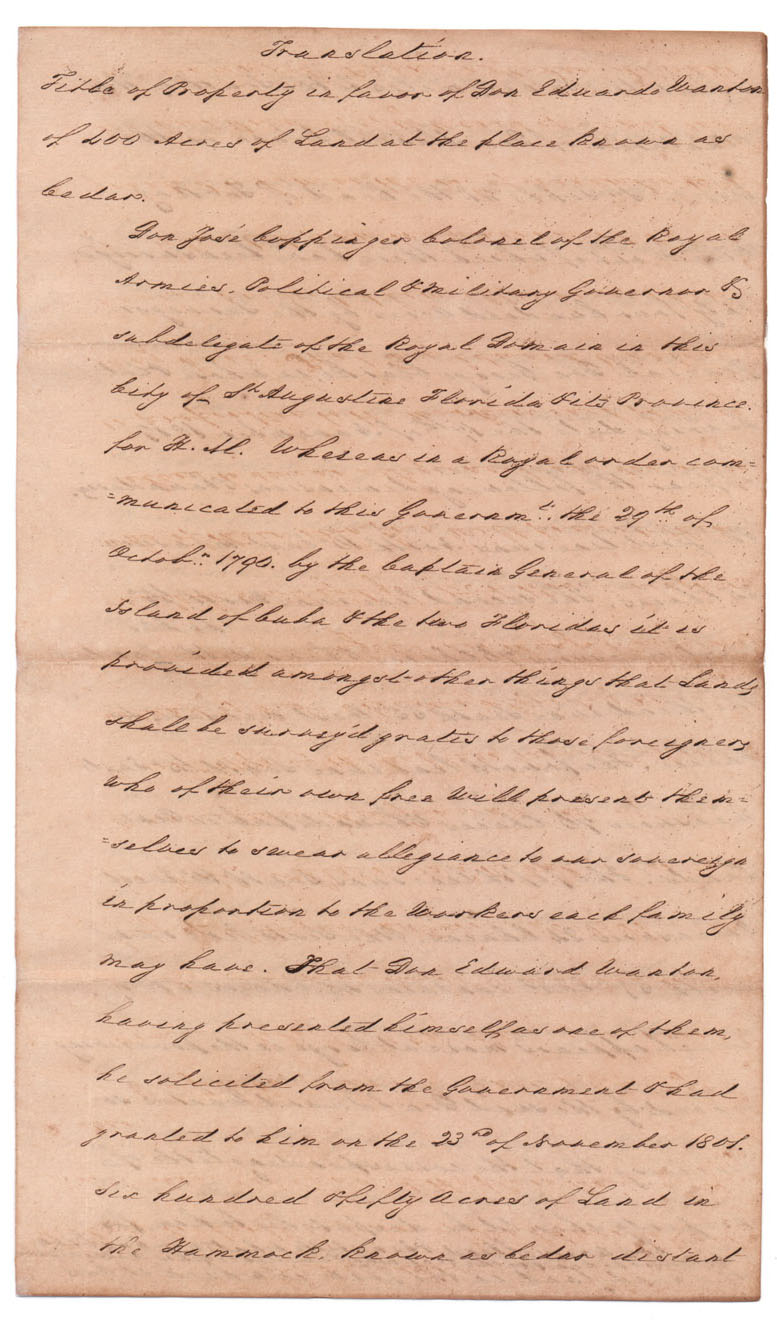 Translation.
Title of Property in favor of Don Eduardo Wanton
of 400 Acres of Land at the place known as
Cedar.
Don José Coppinger Colonel of the Royal
Armies, Political & Military Governor &
subdelegate of the Royal Domain in this
City of St. Augustine Florida & its Province.
for H. M. Whereas in a Royal order com=
=municated to this Governmt. the 29th of
Octobr. 1790. by the Captain General of the
Island of Cuba & the two Floridas it is
provided amongst other things that Lands
shall be survey'd gratis to those foreigners
who of their own free Will present them=
=selves to swear allegiance to our sovereign
in proportion to the Workers each family
may have. That Don Edward Wanton,
having presented himself, as one of them,
he solicited from the Government & had
granted to him on the 23rd of November 1801.
six hundred & fifty Acres of Land in
the Hammock, known as Cedar distant